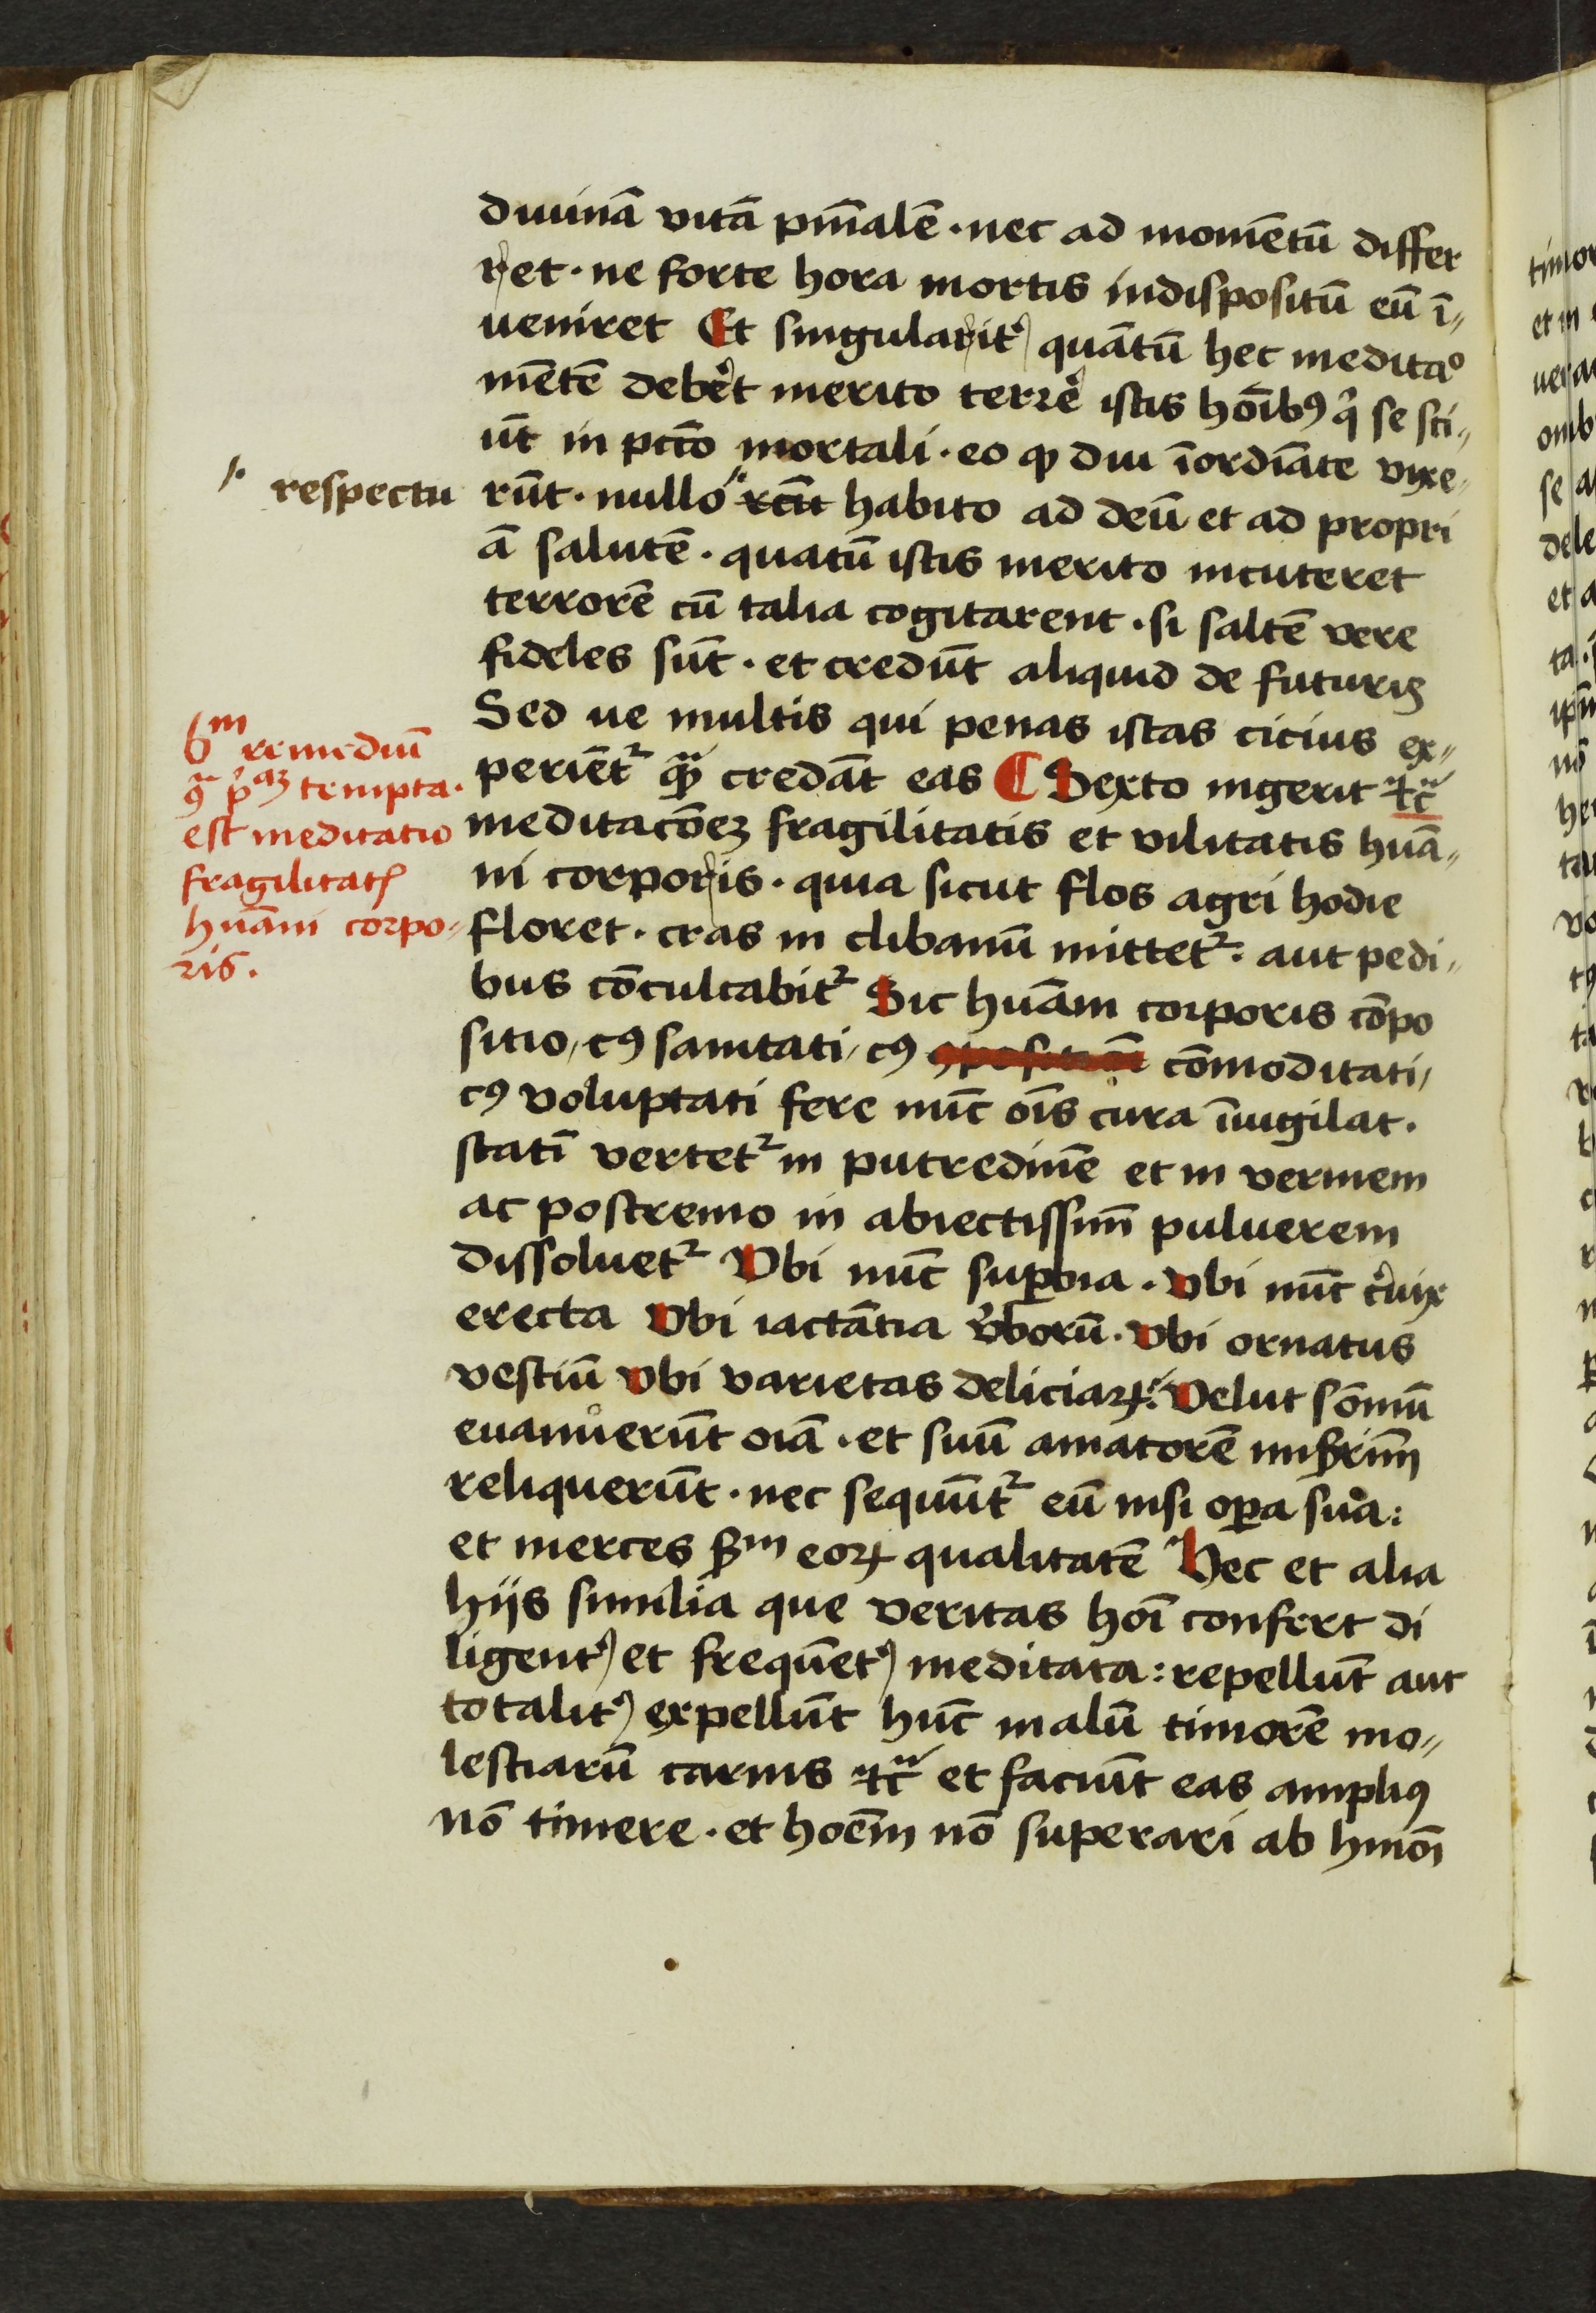 diuinā vitā pm̄alē · nec ad momētū differ
ret · ne forte hora mortis indispositū eū ī-
ueniret Et singularit᷑ quātū hec meditao
mētē deb᷑et merito terre᷑ istis hōibꝯ qͥ se sci-
ūt in pctō mortali · eo ꝙ diu īordīate vixe-
respectu
rūt · nullo habito ad deū et ad propri
ā salutē · quātū istis merito incuteret
terrorē cū talia cogitarent · si saltē vere
fideles sūt · et credūt aliquid de futuris
Sed ue multis qui penas istas cicius ex-
periēt᷑ qͣꝫ credāt eas ¶ Sexto ingerit
6m remediū
ꝯͣ pͥaꝫ tempta.
est meditatio
fragilitatꝭ
huāni corpo-
ris.
meditacōeꝫ fragilitatis et vilitatis huā-
ni corporis · quia sicut flos agri hodie
floret · cras in clibanū mittet᷑ · aut pedi-
bus cōculcabit᷑ Sic huāni corporis cōpo
sitio / cꝯ sanitati / cꝯ cōmoditati /
cꝯ voluptati fere nūc oīs cura īuigilat .
statī vertet᷑ in putredinē et in vermem
ac postremo in abiectissim̄ puluerem
dissoluet᷑ Vbi nūc suꝑbia . Vbi nūc c᷑uix
erecta Vbi iactātia v᷑borū . Vbi ornatus
vestiū Vbi varietas deliciaꝝ: Velut sōmnū
euanuerūt oīa · et suū amatorē miẜrim̄
reliquerūt · nec sequūt᷑ eū nisi oꝑa sua :
et merces ẜm eoꝝ qualitatē Hec et alia
hijs similia que veritas hōi confert di
ligent᷑ et frequēt᷑ meditata : repellūt aut
totalit᷑ expellūt hūc malū timorē mo-
lestiarū carnis ⁊cͣ et faciūt eas ampliꝯ
nō timere · et hoēm nō superari ab hmōi